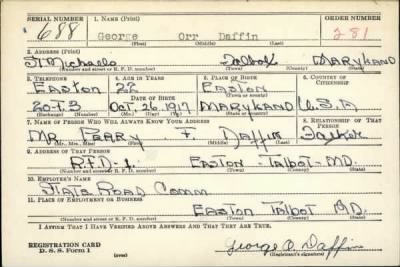 SERIAL NUMBER 1. NAME (Print) ORDER NUMBER
688 George Orr Daffin 281
(First) (Middle) (Last)
2. ADDRESS (Print)
St Michaels Talbot MARYLAND
(Number and street or R. F. D. number) (Town) (County) (State)
3. TELEPHONE 4. AGE IN YEARS 5. PLACE OF BIRTH 6. COUNTRY OF CITIZENSHIP
EASTON 22 EASTON
DATE OF BIRTH (Town or county)
20-F-3 OCT. 26, 1917 MARYLAND U.S.A
(Exchange) (Number) (Mo.) (Day) (Yr.) (State or country)
7. NAME OF PERSON WHO WILL ALWAYS KNOW YOUR ADDRESS 8. RELATIONSHIP OF THAT PERSON
MR. PERRY F. DAFFIN Father
(Mr., Mrs., Miss) (First) (Middle) (Last)
9. ADDRESS OF THAT PERSON
R.F.D-1. EASTON - TALBOT - MD.
(Number and street or R. F. D. number) (Town) (County) (State)
10. EMPLOYER'S NAME
STATE ROAD COMM
11. PLACE OF EMPLOYMENT OR BUSINESS
EASTON TALBOT MD.
(Number and street or R. F. D. number) (Town) (County) (State)
I AFFIRM THAT I HAVE VERIFIED ABOVE ANSWERS AND THAT THEY ARE TRUE.
REGISTRATION CARD
D. S. S. Form 1 (over) George O. Daffin
(Registrant's signature)